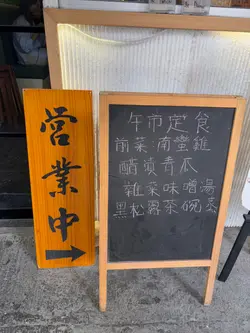 営業中
午市定食
前菜 南蠻雞
醋漬青瓜
雜菜味噌湯
黑松露茶碗蒸